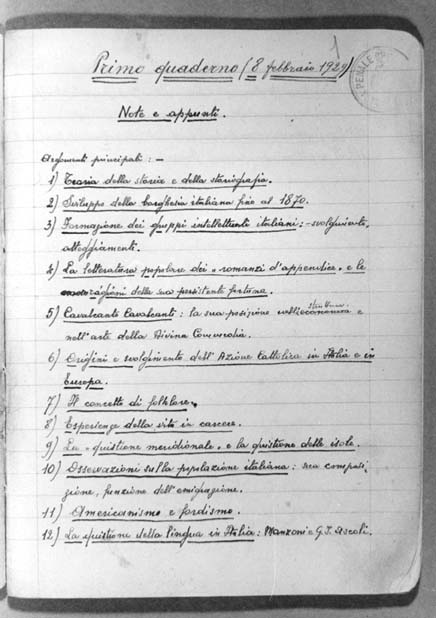 1
Primo quaderno (8 febbraio 1929)
Note e appunti.
Argomenti principali: —
1) Teoria della storia e della storiografia.
2) Sviluppo della borghesia italiana fino al 1870.
3) Formazione dei gruppi intellettuali italiani: – svolgimento,
atteggiamenti.
4) La letteratura popolare dei «romanzi d'appendice» e le
ragioni della sua persistente fortuna.
5) Cavalcante Cavalcanti: la sua posizione nella struttura economia e
nell'arte della Divina Commedia.
6) Origini e svolgimento dell'Azione Cattolica in Italia e in
Europa.
7) Il concetto di folklore.
8) Esperienze della vita in carcere.
9) La «quistione meridionale» e la quistione delle isole.
10) Osservazioni sulla popolazione italiana: sua composi-
zione, funzione dell'emigrazione.
11) Americanismo e fordismo.
12) La quistione della lingua in Italia: Manzoni e G. I. Ascoli.